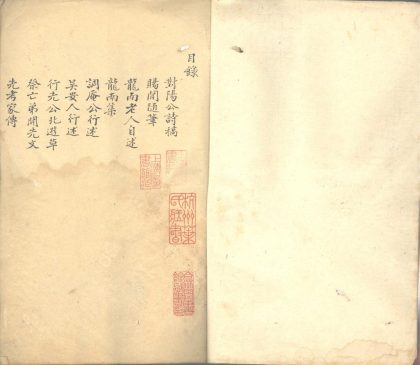 目錄
對陽公詩稿
賜閒隨筆
龍南老人自述
龍南集
訒庵公行述
吳安人行述
行先公北遊草
祭亡弟開先文
先考家傳
杭州葉氏藏書